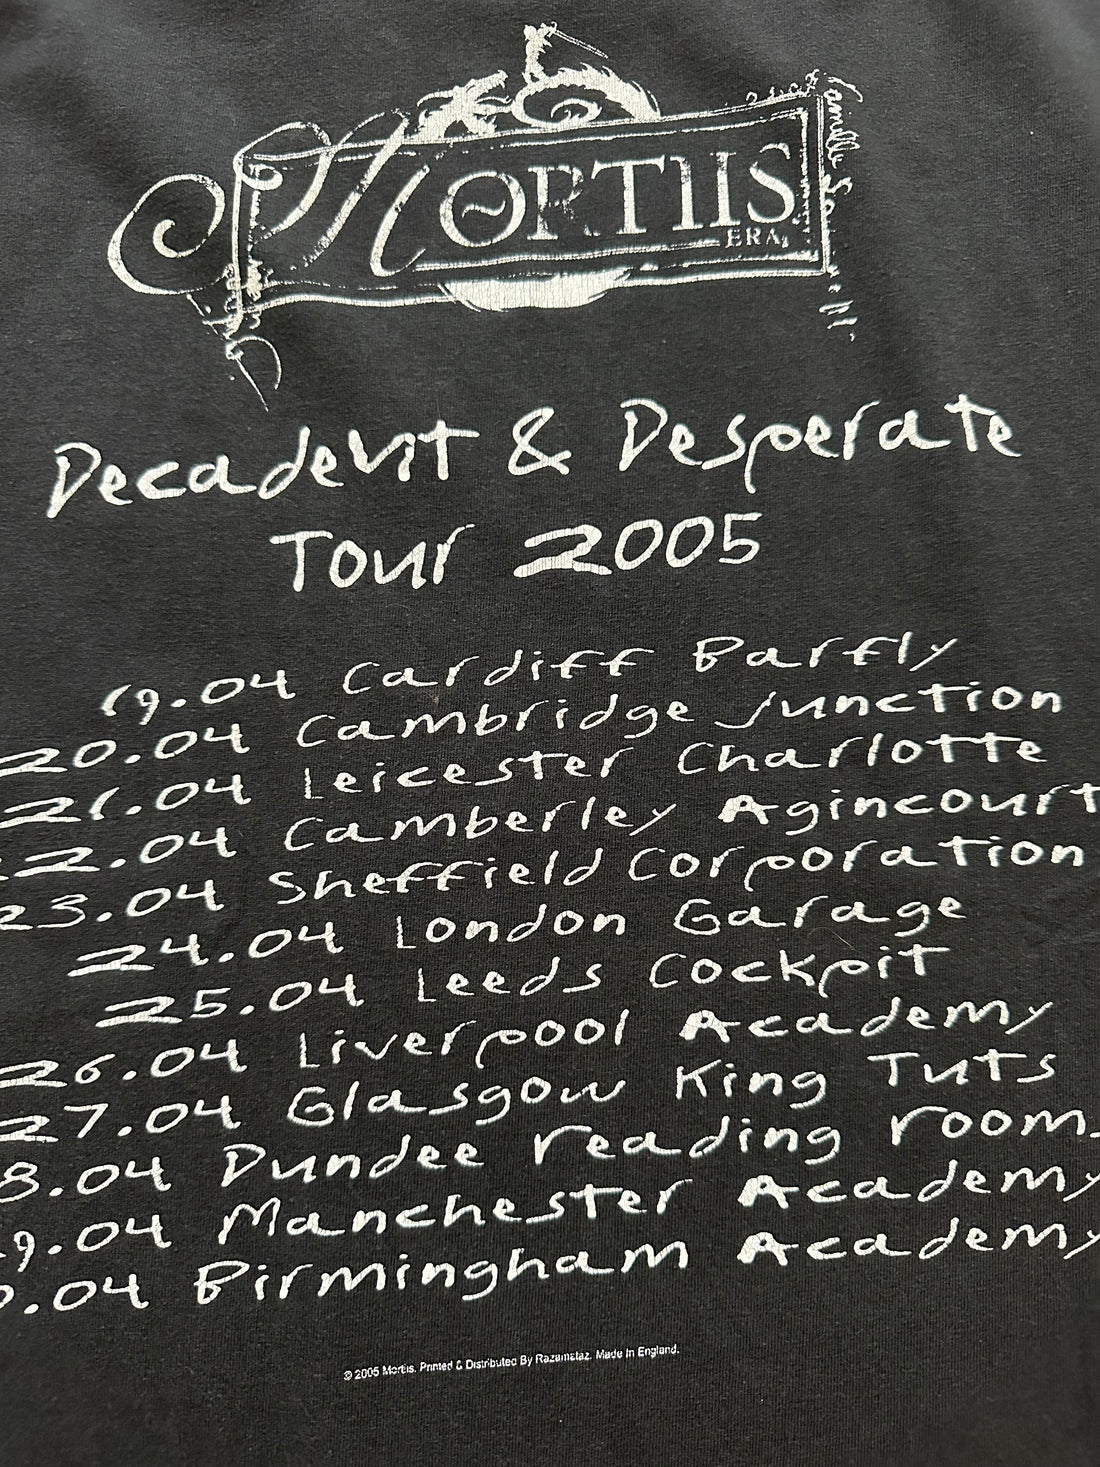 MORTIIS
ERA,
Decadent & Desperate
Tour 2005
19.04 Cardiff Barfly
20.04 Cambridge Junction
21.04 Leicester Charlotte
2.04 Camberley Agincourt
23.04 Sheffield Corporation
24.04 London Garage
25.04 Leeds Cockpit
26.04 Liverpool Academy
27.04 Glasgow King Tuts
8.04 Dundee reading room.
9.04 Manchester Academy
0.04 Birmingham Academy
© 2005 Mortiis. Printed & Distributed By Razamataz. Made In England.